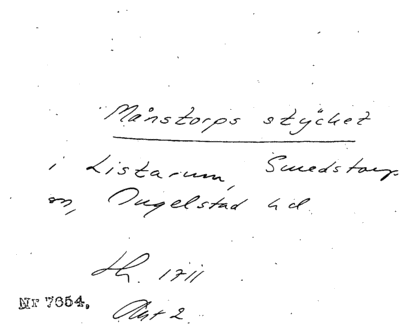 Månstorps stycket
i Listarum, Smedstorps
sn, Ingelstad hd.
Lh. 1711
Nr 7654. Akt 2